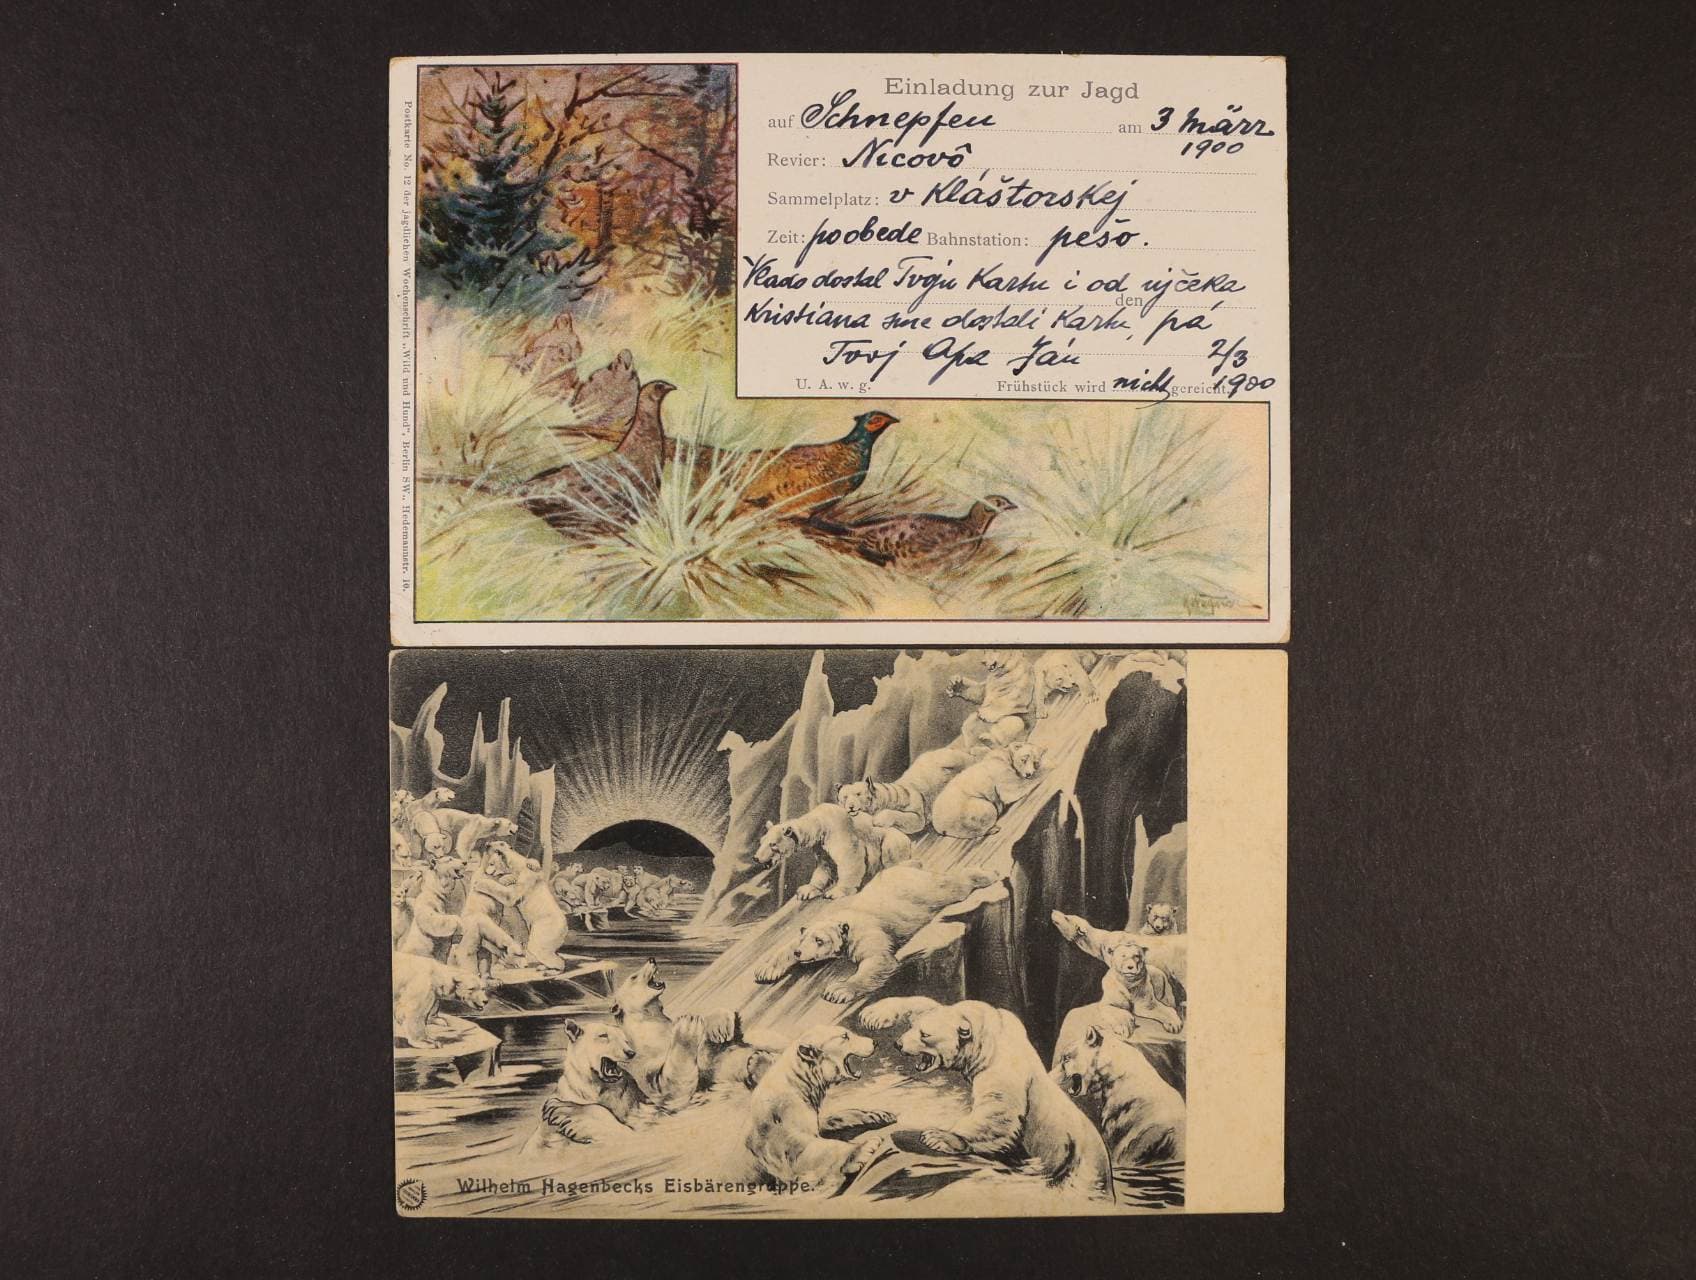 Einladung zur Jagd
auf Schnepfen am 3 März
1900
Revier: Nicovô
Sammelplatz: v Kláštorskej
Zeit: poobede Bahnstation: pešo.
Vlado dostal Tvoju Kartu i od ujčeka
den
Kristiana sme dostali Kartu, pá
Tvoj Apa Ján 2/3
U. A. w. g. Frühstück wird nicht gereicht. 1900
Postkarte No. 12 der jagdlichen Wochenschrift „Wild und Hund", Berlin SW., Hedemannstr. 10.
Wilhelm Hagenbecks Eisbärengruppe.